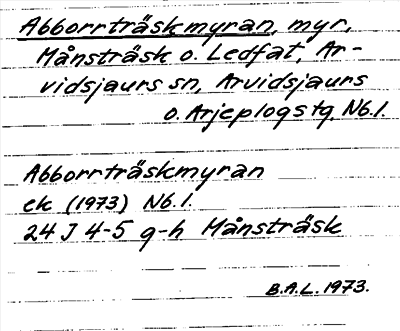 Abborrträskmyran, myr,
Månsträsk o. Ledfat, Ar-
vidsjaurs sn, Arvidsjaurs
o. Arjeplogs tg, Nb.l.
Abborrträskmyran
ek (1973) Nb.l.
24 J 4-5 g-h Månsträsk
B.A.L. 1973.